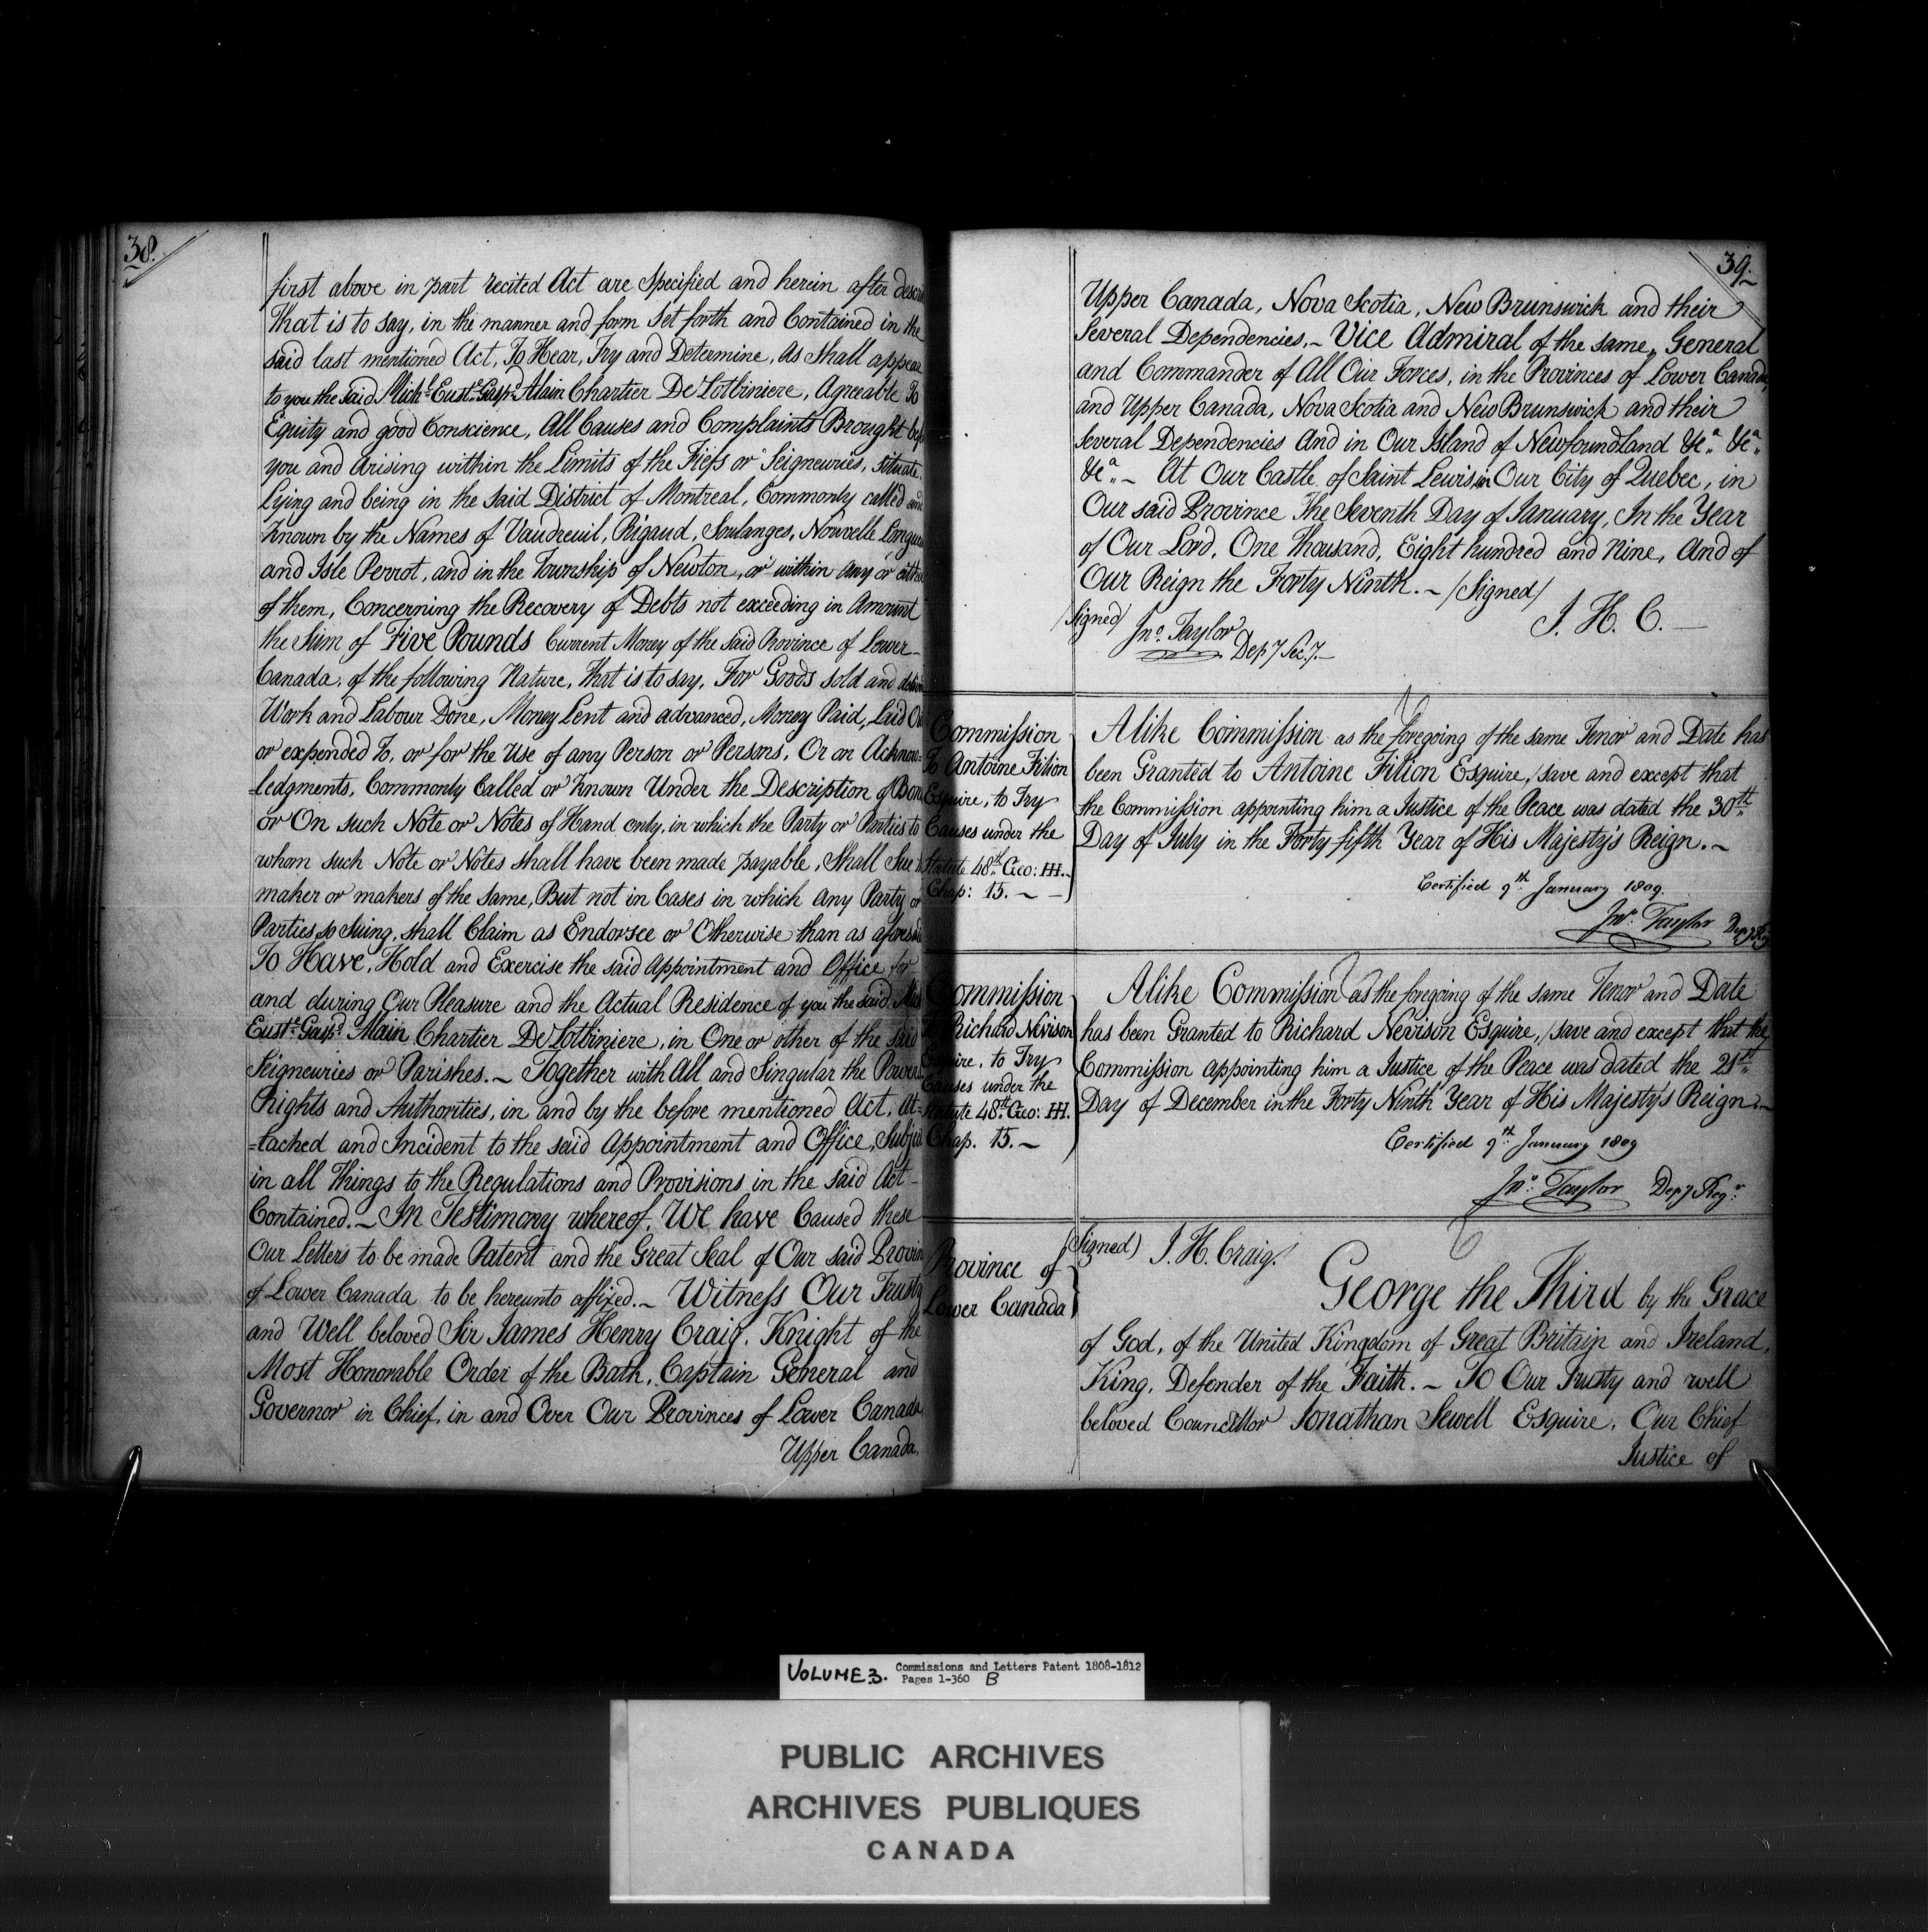 38.
first above in part recited Act are Specified and herein after
That is to say, in the manner and form Set forth and Contained in the
said last mentioned Act, To Hear, Try and Determine, as Shall appear
to you the said Mich:l Eust:e Gasp:d Alain Chartier De Lotbiniere, Agreable To
Equity and good Conscience, All Causes and Complaints Brought
you and Arising within the Limits of the Fiefs or Seigneuries, Situate,
Lying and being in the said District of Montreal, Commonly called and
Known by the Names of Vaudreuil, Rigaud, Soulanges, Nouvelle
and Isle Perrot, and in the Township of Newton, or within any or
of them, Concerning the Recovery of Debts not exceeding in Amount
the Sum of Five Pounds Current Money of the said Province of Lower
Canada, of the following Nature, That is to say, For Goods sold and
Work and Labour Done, Money Lent and advanced, Money Paid, Laid
or expended To, or for the Use of any Person or Persons, Or on Acknow=
=ledgments, Commonly Called or Known Under the Description of
or On such Note or Notes of Hand only, in which the Party or Parties to
whom such Note or Notes shall have been made payable, Shall Sue
maker or makers of the same, But not in Cases in which any Party or
Parties so Suing, shall Claim as Endorsee or Otherwise than as
To Have, Hold and Exercise the said Appointment and Office for
and during Our Pleasure and the Actual Residence of you the said
Eust:e Gasp:d Alain Chartier De Lotbiniere, in One or other of the said
Seigneuries or Parishes.~ Together with All and Singular the
Rights and Authorities, in and by the before mentioned Act, At=
=tached and Incident to the said Appointment and Office,
in all Things to the Regulations and Provisions in the said Act
Contained.~ In Testimony whereof, We have Caused these
Our Letters to be made Patent and the Great Seal of Our said
of Lower Canada to be hereunto affixed.~ Witness Our Trusty
and Well beloved Sir James Henry Craig, Knight of the
Most Honorable Order of the Bath, Captain General and
Governor in Chief, in and Over Our Provinces of Lower Canada
Upper Canada,
39.
Upper Canada, Nova Scotia, New Brunswick and their
Several Dependencies,~ Vice Admiral of the same, General
and Commander of All Our Forces, in the Provinces of Lower Canada,
and Upper Canada, Nova Scotia and New Brunswick and their
Several Dependencies And in Our Island of Newfoundland &c.a &c.a
&c.a ~ At Our Castle of Saint Lewis in Our City of Quebec, in
Our said Province The Seventh Day of January, In the Year
of Our Lord, One Thousand, Eight hundred and Nine, And of
Our Reign the Forty Ninth.~ /Signed/
J. H. C.
/Signed/ Jn.o Taylor
Dep'y Sec'y.
Commission
To Antoine Filion
Esquire, to Try
Causes under the
Statute 48.th Geo: III.
Chap: 15.~
A like Commission as the foregoing of the same Tenor and Date has
been Granted to Antoine Filion Esquire, save and except that
the Commission appointing him a Justice of the Peace was dated the 30.th
Day of July in the Forty fifth Year of His Majesty's Reign.~
Certified 9.th January 1809.
Jn.o Taylor Dep'y Reg
Commission
To Richard Nevison
Esquire, to Try
Causes under the
Statute 48.th Geo: III.
Chap. 15.~
A like Commission as the foregoing of the same Tenor and Date
has been Granted to Richard Nevison Esquire, /save and except that the
Commission appointing him a Justice of the Peace was dated the 21.st
Day of December in the Forty Ninth Year of His Majesty's Reign.~
Certified 9.th January 1809
Jn.o Taylor Dep'y Reg.r
Province of
Lower Canada
(Signed) J. H. Craig.
George the Third by the Grace
of God, of the United Kingdom of Great Britain and Ireland,
King, Defender of the Faith.~ To Our Trusty and well
beloved Councillor Jonathan Sewell Esquire, Our Chief
Justice of
VOLUME 3. Commissions and Letters Patent 1808-1812
Pages 1-360 B
PUBLIC ARCHIVES
ARCHIVES PUBLIQUES
CANADA